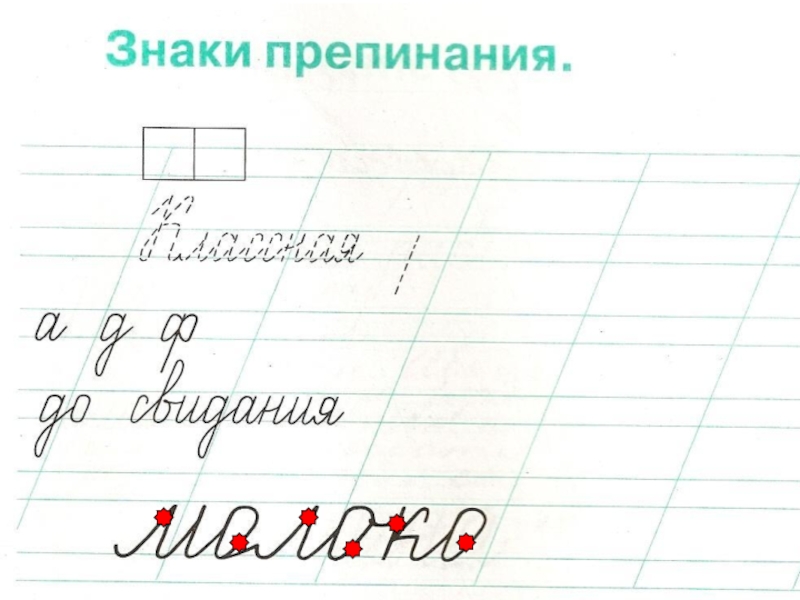 Знаки препинания.
Классная
а д ф
до свидания
молоко